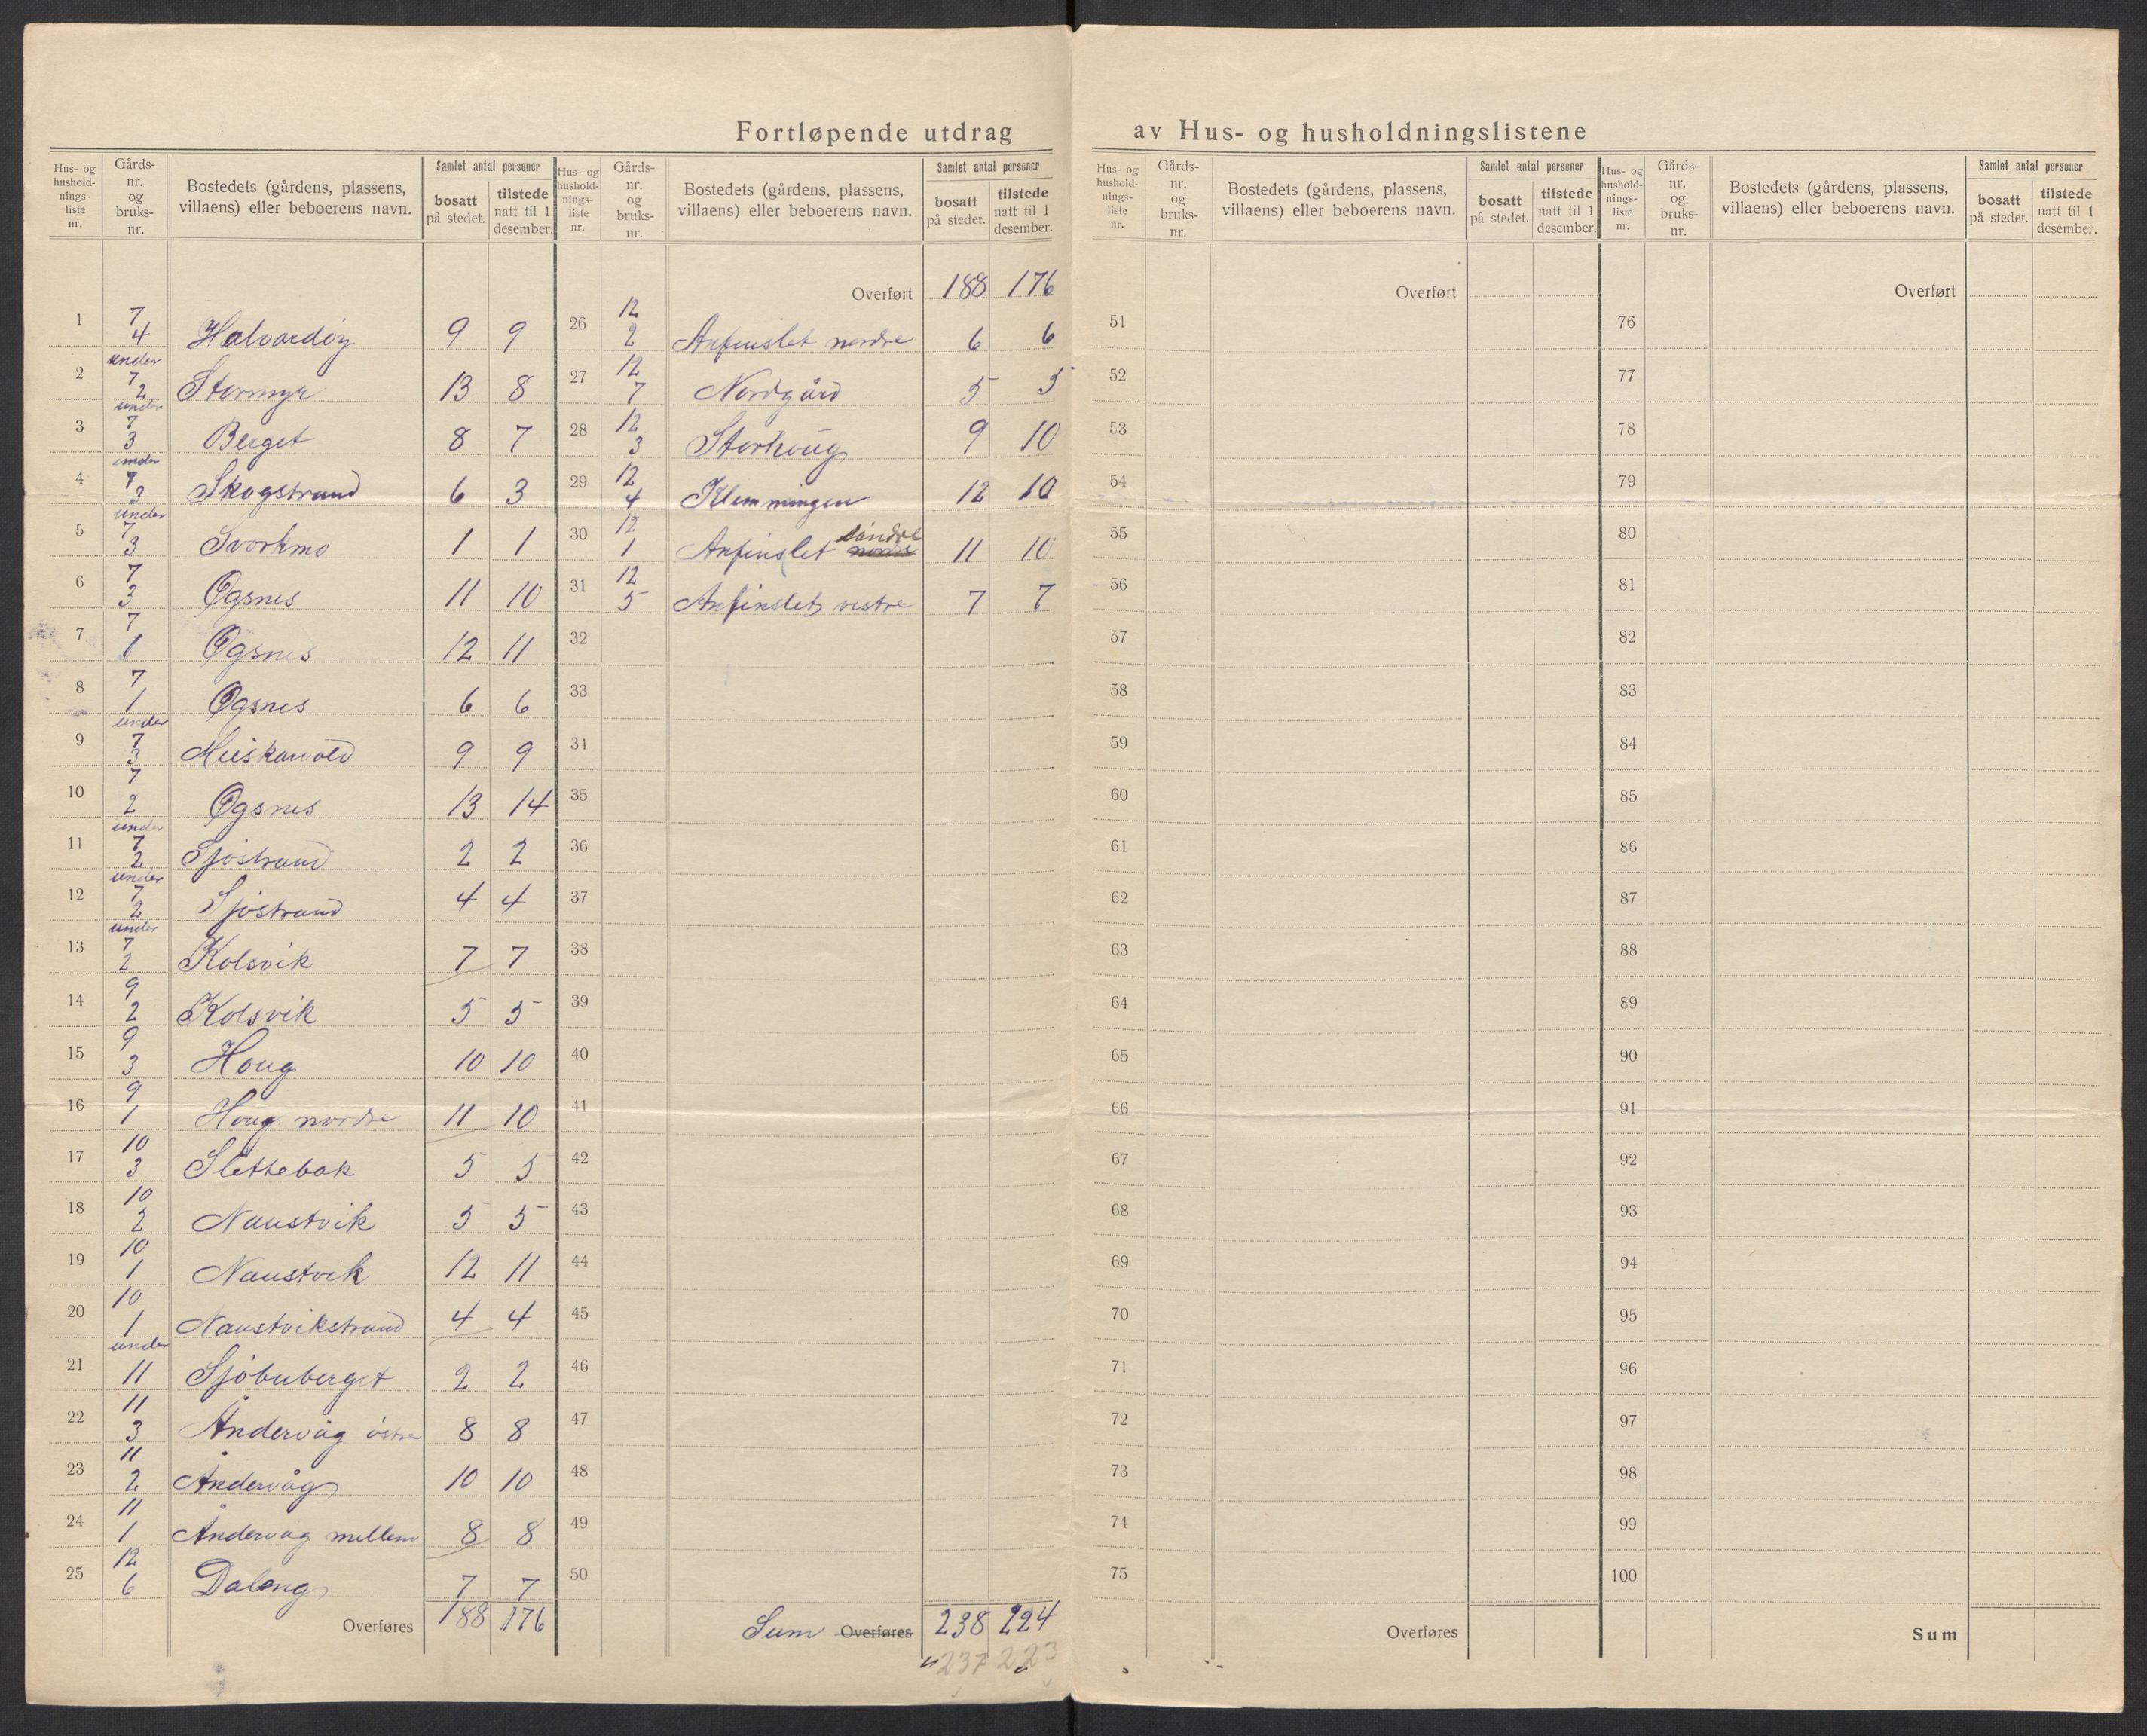 Fortløpende utdrag av Hus- og husholdningslistene
Hus- og hushold-nings-liste nr. | Gårds-nr. og bruks-nr. | Bostedets (gårdens, plassens, villaens) eller beboerens navn. | Samlet antal personer | bosatt på stedet. | tilstede natt til 1 desember.
1 7 4 Halvardöy 9 9
2 under 7 2 Stormyr 13 8
3 under 7 3 Berget 8 7
4 under 7 3 Skogstrand 6 3
5 under 7 3 Svorkmo 1 1
6 7 3 Øgsnes 11 10
7 7 1 Øgsnes 12 11
8 7 1 Øgsnes 6 6
9 under 7 3 9 9
10 7 2 Øgsnes 13 14
11 under 7 2 Sjöstrand 2 2
12 under 7 2 Sjöstrand 4 4
13 under 7 2 Kolsvik 7 7
14 9 2 Kolsvik 5 5
15 9 3 Houg 10 10
16 9 1 Houg nordre 11 10
17 10 3 Slettebak 5 5
18 10 2 Naustvik 5 5
19 10 1 Naustvik 12 11
20 10 1 Naustvikstrand 4 4
21 under 11 Sjöbuberget 2 2
22 11 3 Åndervåg östre 8 8
23 11 2 Åndervåg 10 10
24 11 1 Åndervåg mellem 8 8
25 12 6 Daleng 7 7
Overføres 188 176
Hus- og hushold-nings-liste nr. | Gårds-nr. og bruks-nr. | Bostedets (gårdens, plassens, villaens) eller beboerens navn. | Samlet antal personer | bosatt på stedet. | tilstede natt til 1 desember.
Overført 188 176
26 12 2 Anfinslet nordre 6 6
27 12 7 Nordgård 5 5
28 12 3 Storhoug 9 10
29 12 4 Klemmingen 12 10
30 12 1 Anfinslet söndre 11 10
31 12 5 Anfinslet vestre 7 7
32
33
34
35
36
37
38
39
40
41
42
43
44
45
46
47
48
49
50
Sum Overføres 238 224
237 223
Hus- og hushold-nings-liste nr. | Gårds-nr. og bruks-nr. | Bostedets (gårdens, plassens, villaens) eller beboerens navn. | Samlet antal personer | bosatt på stedet. | tilstede natt til 1 desember.
Overført
51
52
53
54
55
56
57
58
59
60
61
62
63
64
65
66
67
68
69
70
71
72
73
74
75
Overføres
Hus- og hushold-nings-liste nr. | Gårds-nr. og bruks-nr. | Bostedets (gårdens, plassens, villaens) eller beboerens navn. | Samlet antal personer | bosatt på stedet. | tilstede natt til 1 desember.
Overført
76
77
78
79
80
81
82
83
84
85
86
87
88
89
90
91
92
93
94
95
96
97
98
99
100
Sum